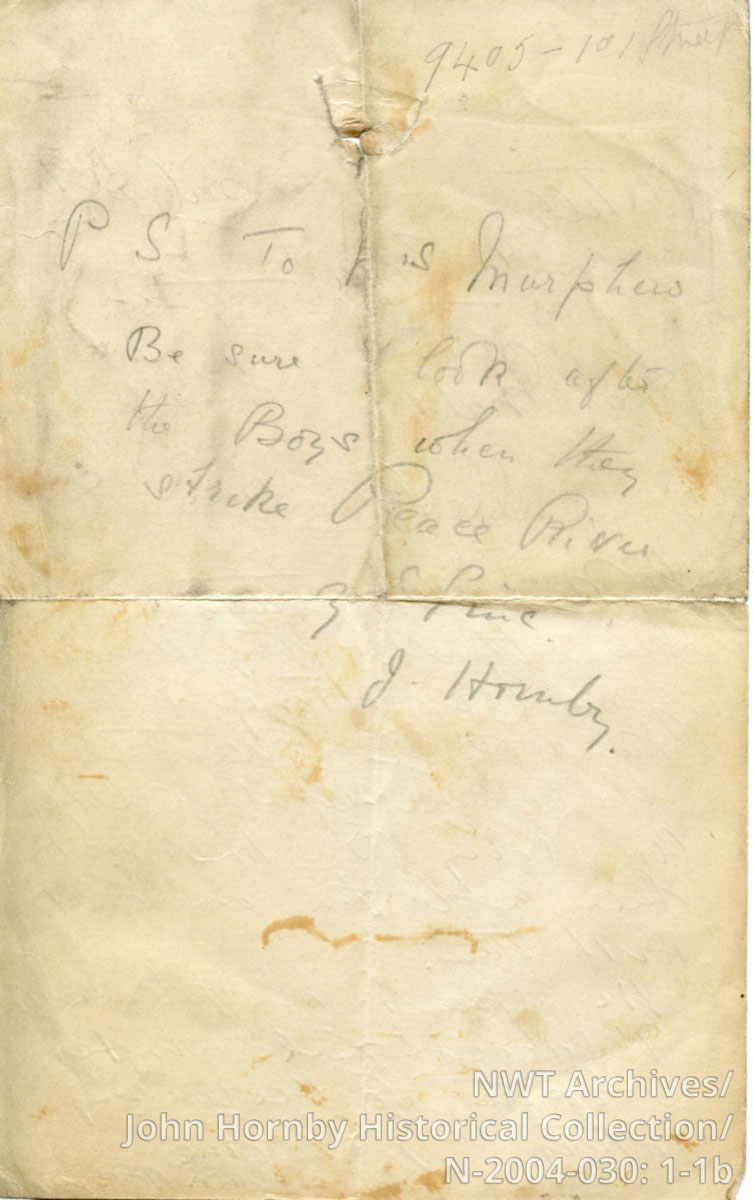 9405 - 101 Street
P S. To Murphew
Be sure look after
the Boys when they
strike Peace River
J. Hornby.
NWT Archives/
John Hornby Historical Collection/
N-2004-030: 1-1b